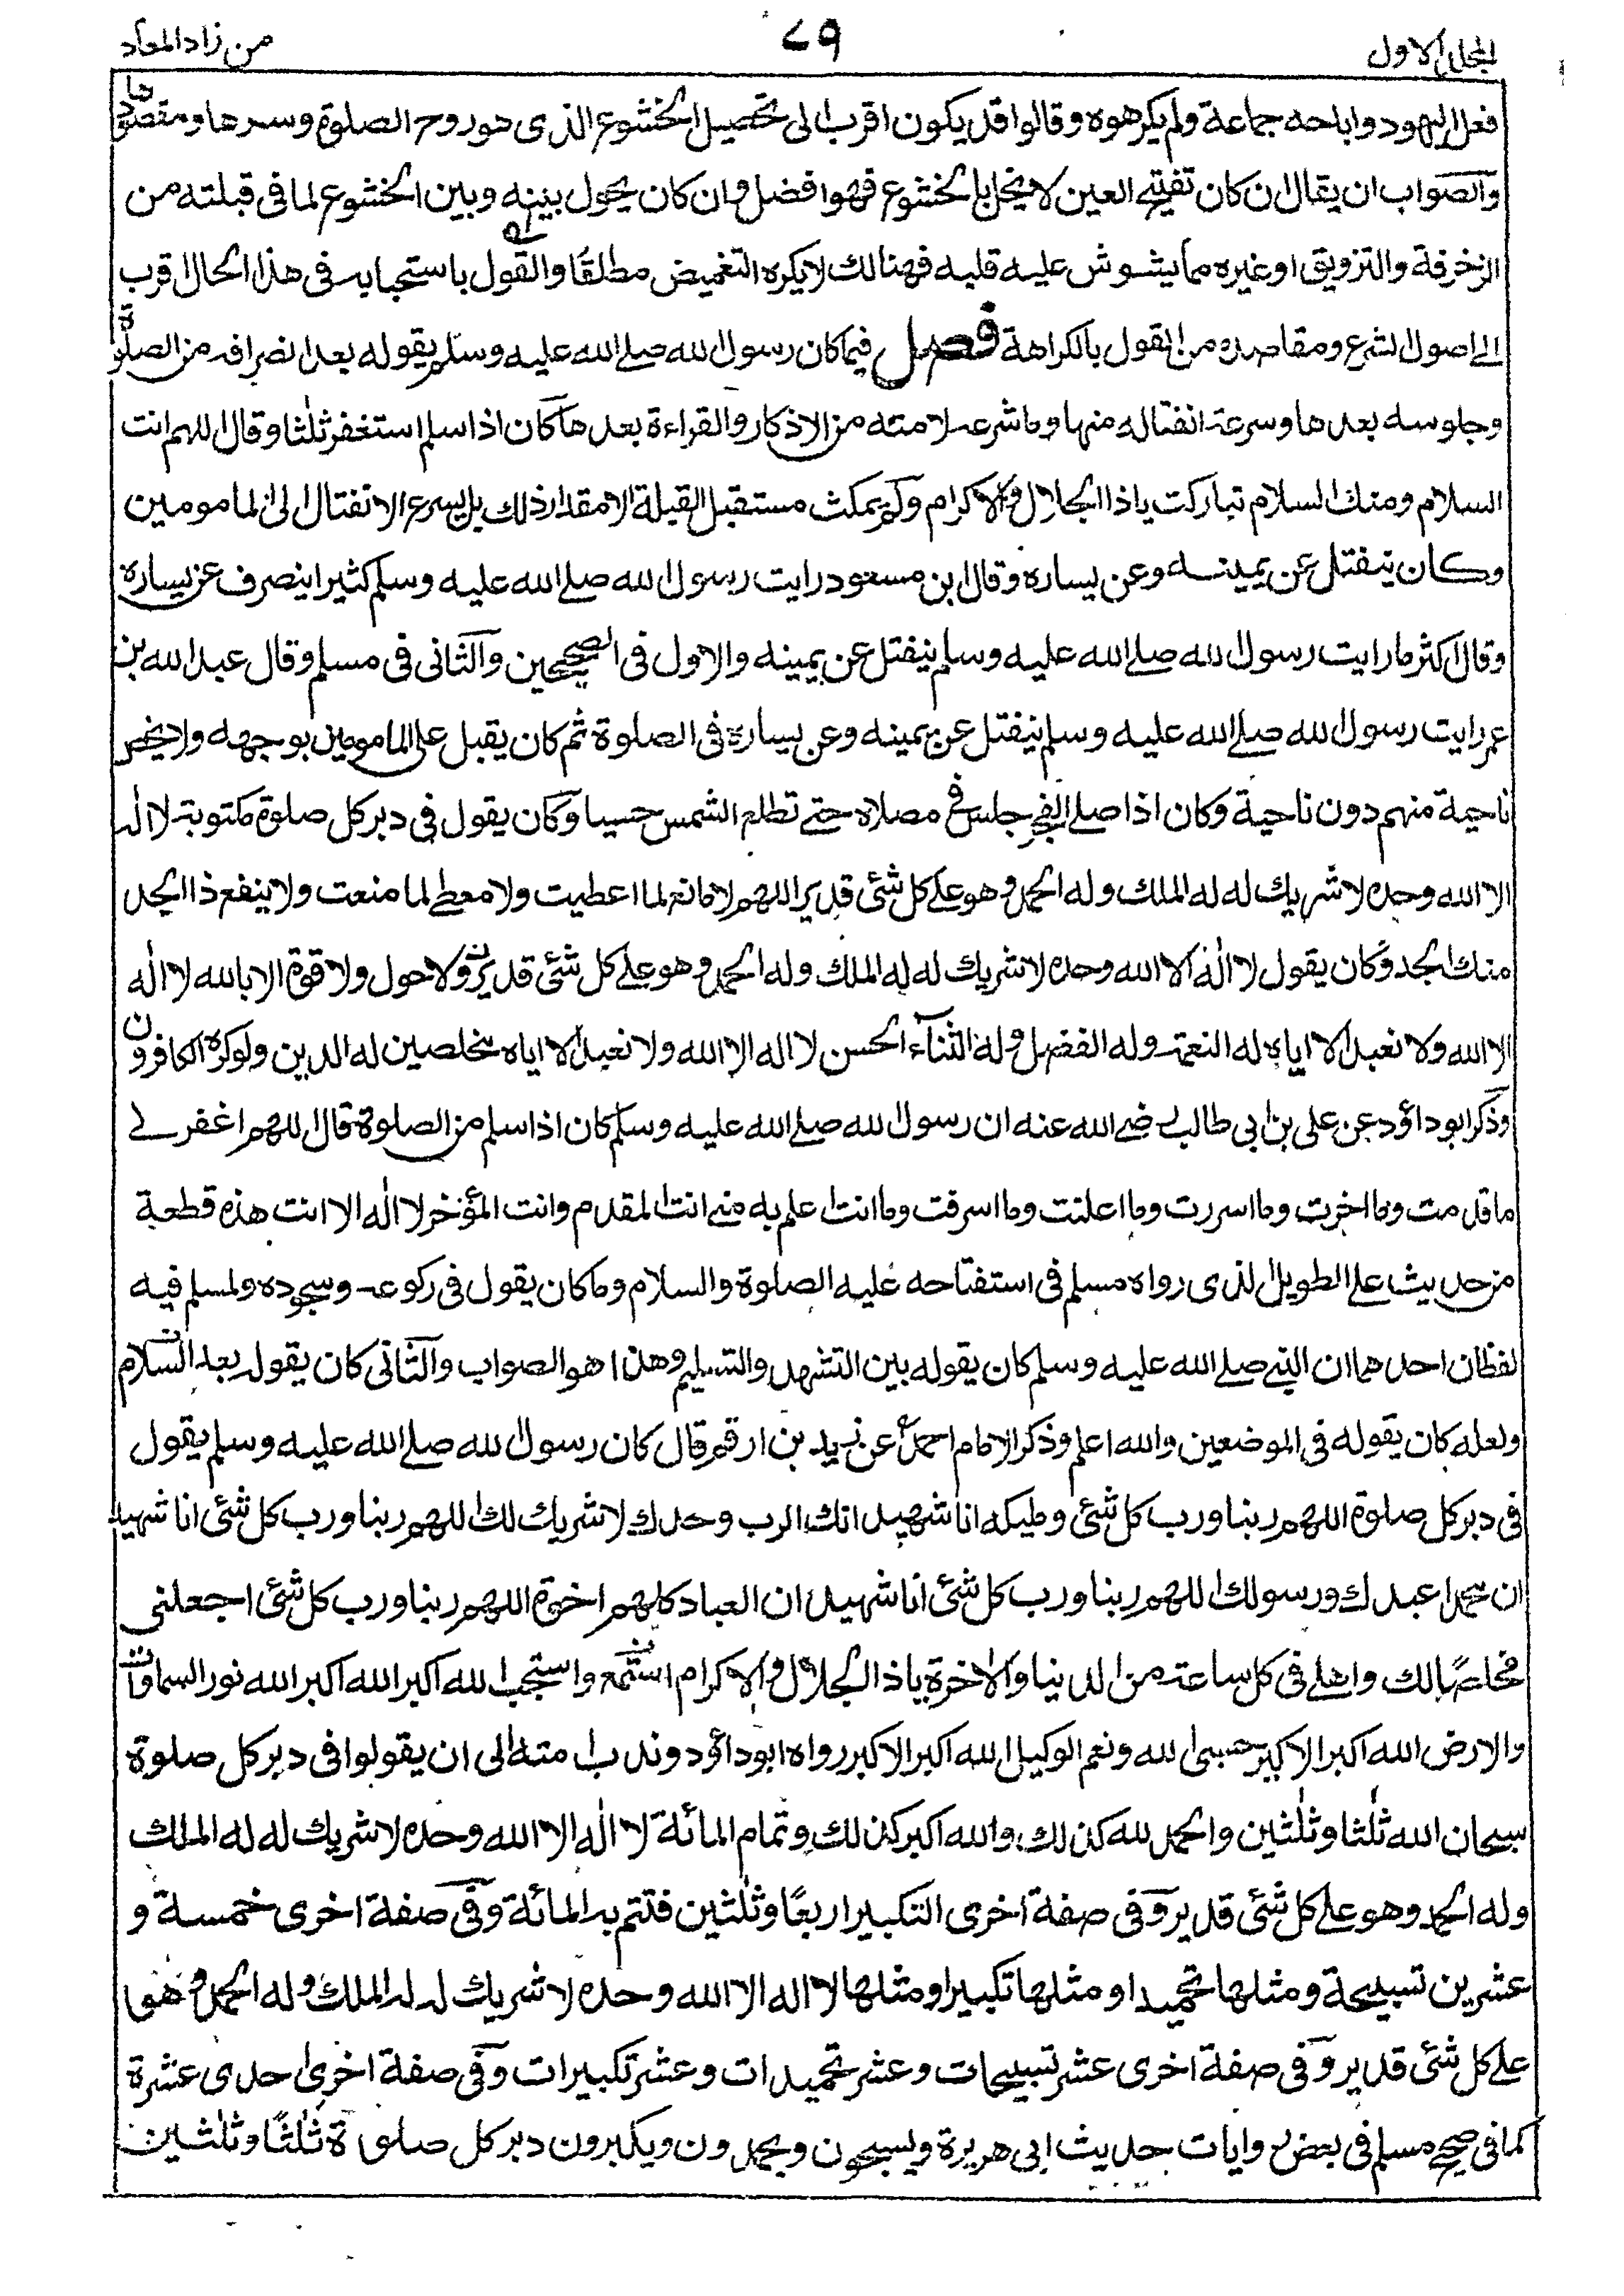 المجلد الاول
٧٩
من زاد المعاد
فعل اليهود واباحه جماعة ولم يكرهوه وقالوا قد يكون اقرب الى تحصيل الخشوع الذى هو روح الصلوة وسرها ومقصودها
والصواب ان يقال ان كان تفتيح العين لا يخل بالخشوع فهوا فضل وان كان يحول بينه وبين الخشوع لما فى قبلته من
الزخرفة والتزويق او غيره مما يشوش عليه قلبه فهنالك لا يكره التغميض مطلقًا والقول باستحبابه فى هذا الحال اقرب
الى اصول الشرع ومقاصده من القول بالكراهة فصل فيما كان رسول الله صلى الله عليه وسلم يقوله بعد انصرافه من الصلوة
وجلوسه بعدها وسرعة انفتاله منها وما شرعه لامته من الاذكار والقراءة بعدها كان اذا سلم استغفر ثلثا وقال اللهم انت
السلام ومنك السلام تباركت يا ذا الجلال والاكرام ولم يمكث مستقبل القبلة الا مقدار ذلك بل يسرع الانفتال الى المامومين
وكان ينفتل عن يمينه وعن يساره وقال ابن مسعود رايت رسول الله صلى الله عليه وسلم كثيرا ينصرف عن يساره
وقال اكثر ما رايت رسول الله صلى الله عليه وسلم ينفتل عن يمينه والاول فى الصحيحين والثانى فى مسلم وقال عبد الله بن
عمر رايت رسول الله صلى الله عليه وسلم ينفتل عن يمينه وعن يساره فى الصلوة ثم كان يقبل على المامومين بوجهه ولا يخص
ناحية منهم دون ناحية وكان اذا صلى الفجر جلس فى مصلاه حتى تطلع الشمس حسنا وكان يقول فى دبر كل صلوة مكتوبة لا اله
الا الله وحده لا شريك له له الملك وله الحمد وهو على كل شئ قدير اللهم لا مانع لما اعطيت ولا معطى لما منعت ولا ينفع ذا الجد
منك الجد وكان يقول لا اله الا الله وحده لا شريك له له الملك وله الحمد وهو على كل شئ قدير ولا حول ولا قوة الا بالله لا اله
الا الله ولا نعبد الا اياه له النعمة وله الفضل وله الثناء الحسن لا اله الا الله ولا نعبد الا اياه مخلصين له الدين ولو كره الكافرون
وذكر ابو داؤد عن على بن ابى طالب رضى الله عنه ان رسول الله صلى الله عليه وسلم كان اذا سلم من الصلوة قال اللهم اغفر لى
ما قدمت وما اخرت وما اسررت وما اعلنت وما اسرفت وما انت اعلم به منى انت المقدم وانت المؤخر لا اله الا انت هذه قطعة
من حديث على الطويل الذى رواه مسلم فى استفتاحه عليه الصلوة والسلام وما كان يقول فى ركوعه وسجوده ولمسلم فيه
لفظان احدهما ان النبى صلى الله عليه وسلم كان يقوله بين التشهد والتسليم وهذا هو الصواب والثانى كان يقوله بعد السلام
ولعله كان يقوله فى الموضعين والله اعلم وذكر الامام احمد عن زيد بن ارقم قال كان رسول الله صلى الله عليه وسلم يقول
فى دبر كل صلوة اللهم ربنا ورب كل شئ ومليكه انا شهيد انك الرب وحدك لا شريك لك اللهم ربنا ورب كل شئ انا شهيد
ان محمدا عبدك ورسولك اللهم ربنا ورب كل شئ انا شهيد ان العباد كلهم اخوة اللهم ربنا ورب كل شئ اجعلنى
مخلصًا لك واهلى فى كل ساعة من الدنيا والاخرة يا ذا الجلال والاكرام استمع واستجب الله اكبر الله اكبر الله نور السماوات
والارض الله اكبر الاكبر حسبى الله ونعم الوكيل الله اكبر الاكبر رواه ابو داؤد وندب امته الى ان يقولوا فى دبر كل صلوة
سبحان الله ثلثا وثلثين والحمد لله كذلك والله اكبر كذلك وتمام المائة لا اله الا الله وحده لا شريك له له الملك
وله الحمد وهو على كل شئ قدير وفى صفة اخرى التكبير اربعًا وثلثين فتتم به المائة وفى صفة اخرى خمسة و
عشرين تسبيحة ومثلها تحميدا ومثلها تكبيرا ومثلها لا اله الا الله وحده لا شريك له له الملك وله الحمد وهو
على كل شئ قدير وفى صفة اخرى عشر تسبيحات وعشر تحميدات وعشر تكبيرات وفى صفة اخرى احدى عشرة
كما فى صحيح مسلم فى بعض روايات حديث ابى هريرة ويسبحون ويحمدون ويكبرون دبر كل صلوة ثلثًا وثلثين